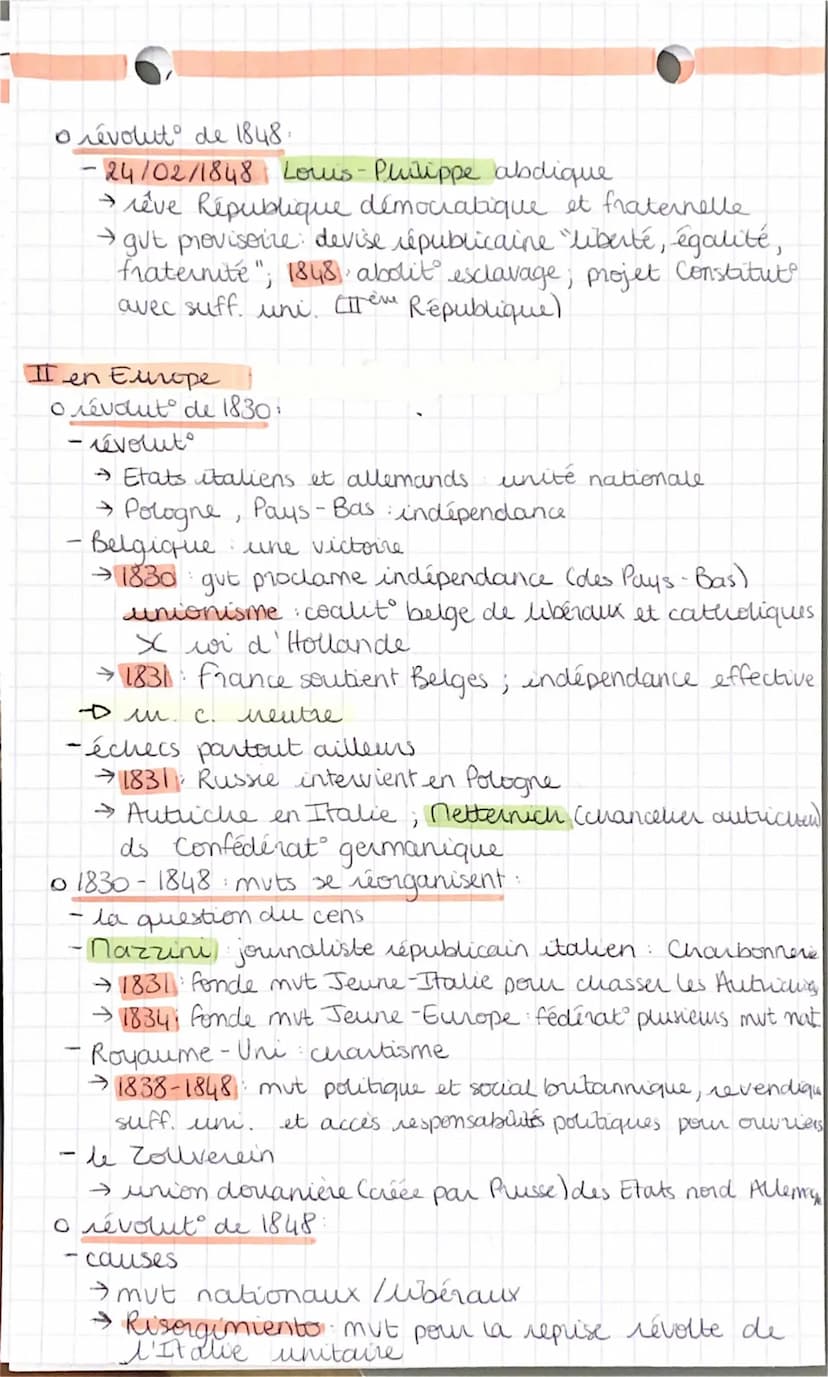 o révolut° de 1848:
- 24/02/1848 Louis-Philippe abdique
→ rêve République démocratique et fraternelle
→ gvt provisoire: devise républicaine "liberté, égalité,
fraternité"; 1848: abolit° esclavage; projet Constitut°
avec suff. uni. (IIème République)
II en Europe
o révolut° de 1830:
- révolut°
→ Etats italiens et allemands unité nationale
→ Pologne, Pays-Bas : indépendance
- Belgique : une victoire
→ 1830 : gvt proclame indépendance (des Pays-Bas)
unionisme : coalit° belge de libéraux et catholiques
X roi d'Hollande
→ 1831 : France soutient Belges ; indépendance effective
→ m. c. neutre
- échecs partout ailleurs
→ 1831 : Russie intervient en Pologne
→ Autriche en Italie ; Metternich (chancelier autrichien)
ds Confédérat° germanique
o 1830-1848 : mvts se réorganisent :
- la question du cens
- Mazzini journaliste républicain italien : Charbonnerie
→ 1831 : fonde mvt Jeune-Italie pour chasser les Autrichiens
→ 1834 : fonde mvt Jeune-Europe : fédérat° plusieurs mvt nat.
- Royaume-Uni : chartisme
→ 1838-1848 : mvt politique et social britannique, revendique
suff. uni. et accès responsabilités politiques pour ouvriers
- le Zollverein
→ union douanière (créée par Prusse) des Etats nord Allemagne
o révolut° de 1848:
- causes
→ mvt nationaux / libéraux
→ Risorgimiento : mvt pour la reprise révolte de
l'Italie unitaire